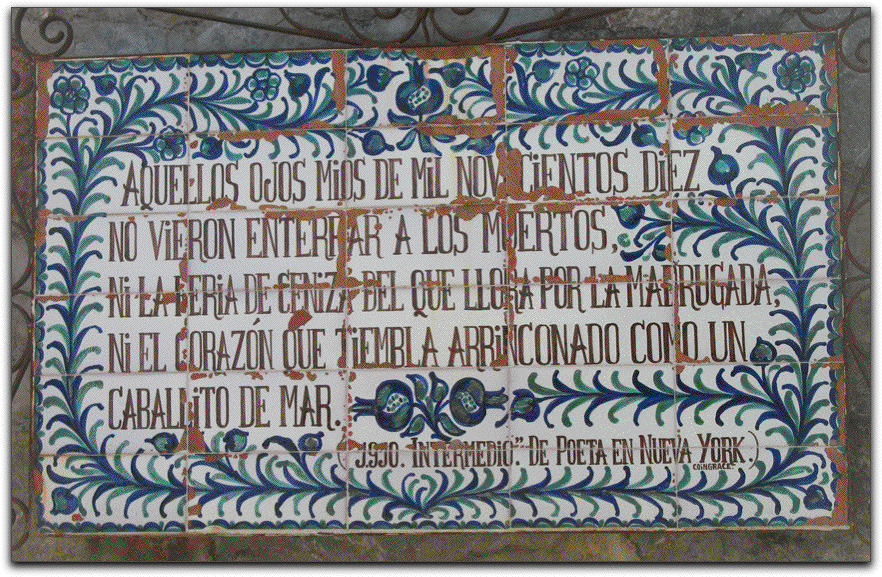 AQUELLOS OJOS MIOS DE MIL NOVECIENTOS DIEZ
NO VIERON ENTERRAR A LOS MUERTOS,
NI LA FERIA DE CENIZA DEL QUE LLORA POR LA MADRUGADA,
NI EL CORAZÓN QUE TIEMBLA ARRINCONADO COMO UN
CABALLITO DE MAR.
(1.910. INTERMEDIO". DE POETA EN NUEVA YORK.)
COINGRACE